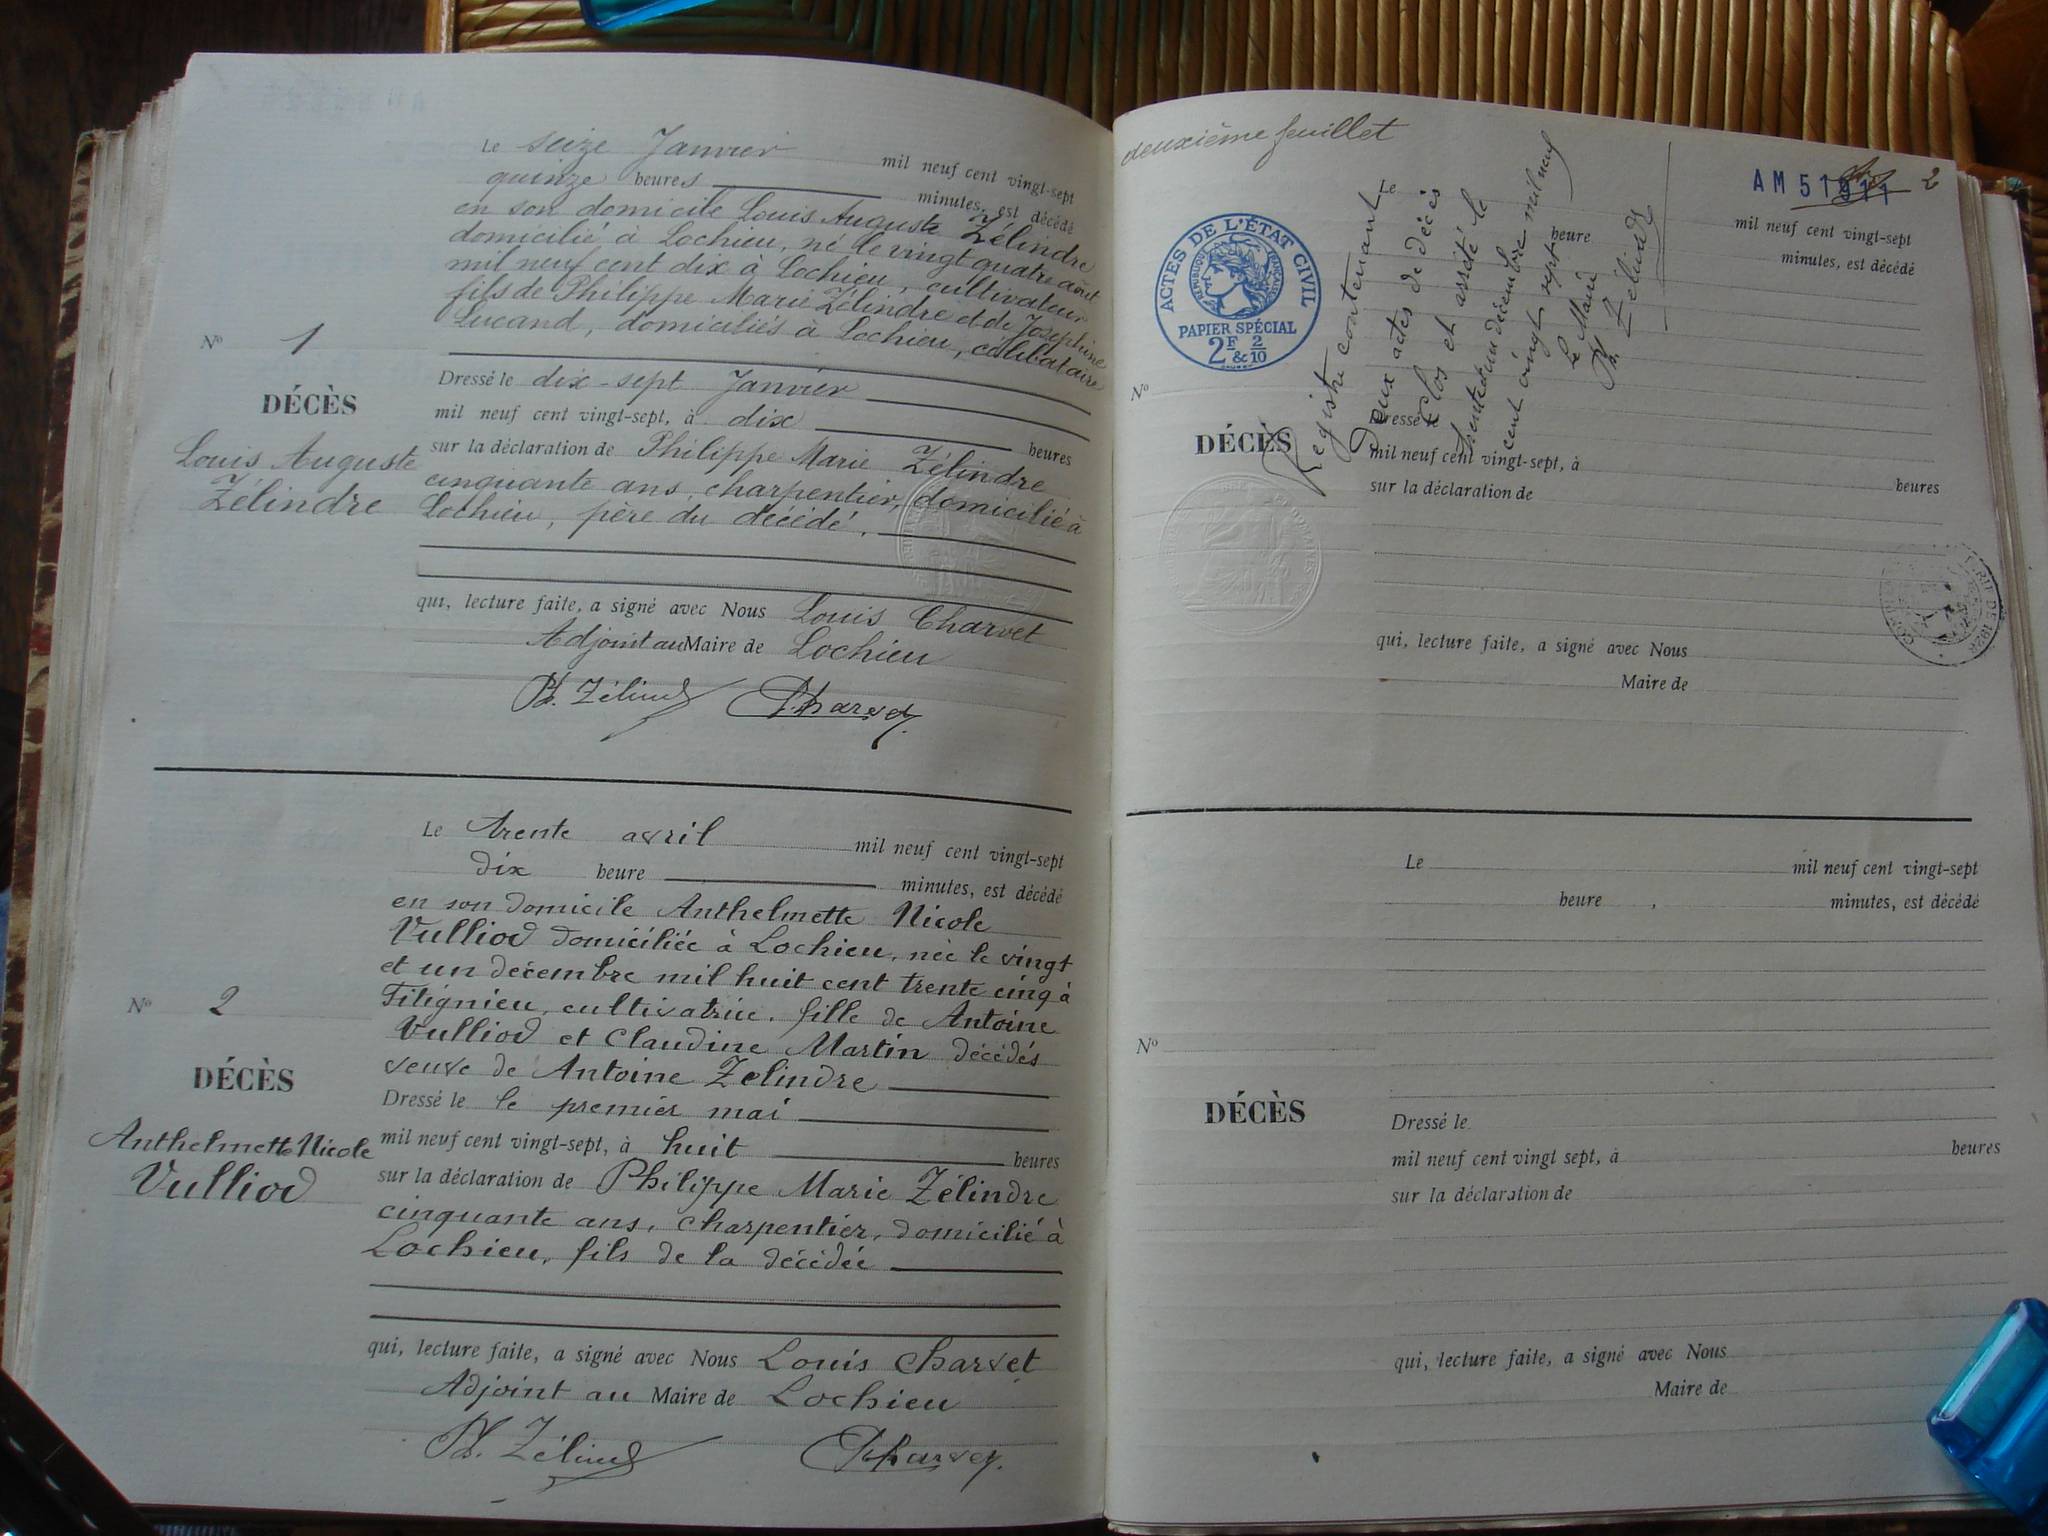 Le seize Janvier mil neuf cent vingt-sept
quinze heures minutes, est décédé
en son domicile Louis Auguste Zélindre
domicilié à Lochieu, né le vingt quatre août
mil neuf cent dix à Lochieu, cultivateur
fils de Philippe Marie Zélindre et de Joséphine
Lucand, domiciliés à Lochieu, célibataire
N° 1
DÉCÈS
Louis Auguste
Zélindre
Dressé le dix-sept Janvier
mil neuf cent vingt-sept, à dix heures
sur la déclaration de Philippe Marie Zélindre
cinquante ans, charpentier, domicilié à
Lochieu, père du décédé,
qui, lecture faite, a signé avec Nous Louis Charvet
Adjoint au Maire de Lochieu
Ph. Zélindre Charvet
Le trente avril mil neuf cent vingt-sept
dix heure minutes, est décédé
en son domicile Anthelmette Nicole
Vulliod domiciliée à Lochieu, née le vingt
et un décembre mil huit cent trente cinq à
Fitignieu, cultivatrice, fille de Antoine
Vulliod et Claudine Martin décédés
veuve de Antoine Zelindre
N° 2
DÉCÈS
Anthelmette Nicole
Vulliod
Dressé le le premier mai
mil neuf cent vingt-sept, à huit heures
sur la déclaration de Philippe Marie Zélindre
cinquante ans, charpentier, domicilié à
Lochieu, fils de la décédée
qui, lecture faite, a signé avec Nous Louis Charvet
Adjoint au Maire de Lochieu
Ph. Zélindre Charvet
deuxième feuillet
AM 51911 2
ACTES DE L'ÉTAT CIVIL
RÉPUBLIQUE FRANÇAISE
PAPIER SPÉCIAL
2F & 2/10
Registre contenant
Deux actes de décès
Clos et arrêté le
trente et un décembre mil neuf
cent vingt sept
Le Maire
Ph. Zélindre
Le mil neuf cent vingt-sept
heure minutes, est décédé
N°
DÉCÈS
Dressé le
mil neuf cent vingt-sept, à heures
sur la déclaration de
qui, lecture faite, a signé avec Nous
Maire de
Le mil neuf cent vingt-sept
heure minutes, est décédé
N°
DÉCÈS
Dressé le
mil neuf cent vingt sept, à heures
sur la déclaration de
qui, lecture faite, a signé avec Nous
Maire de